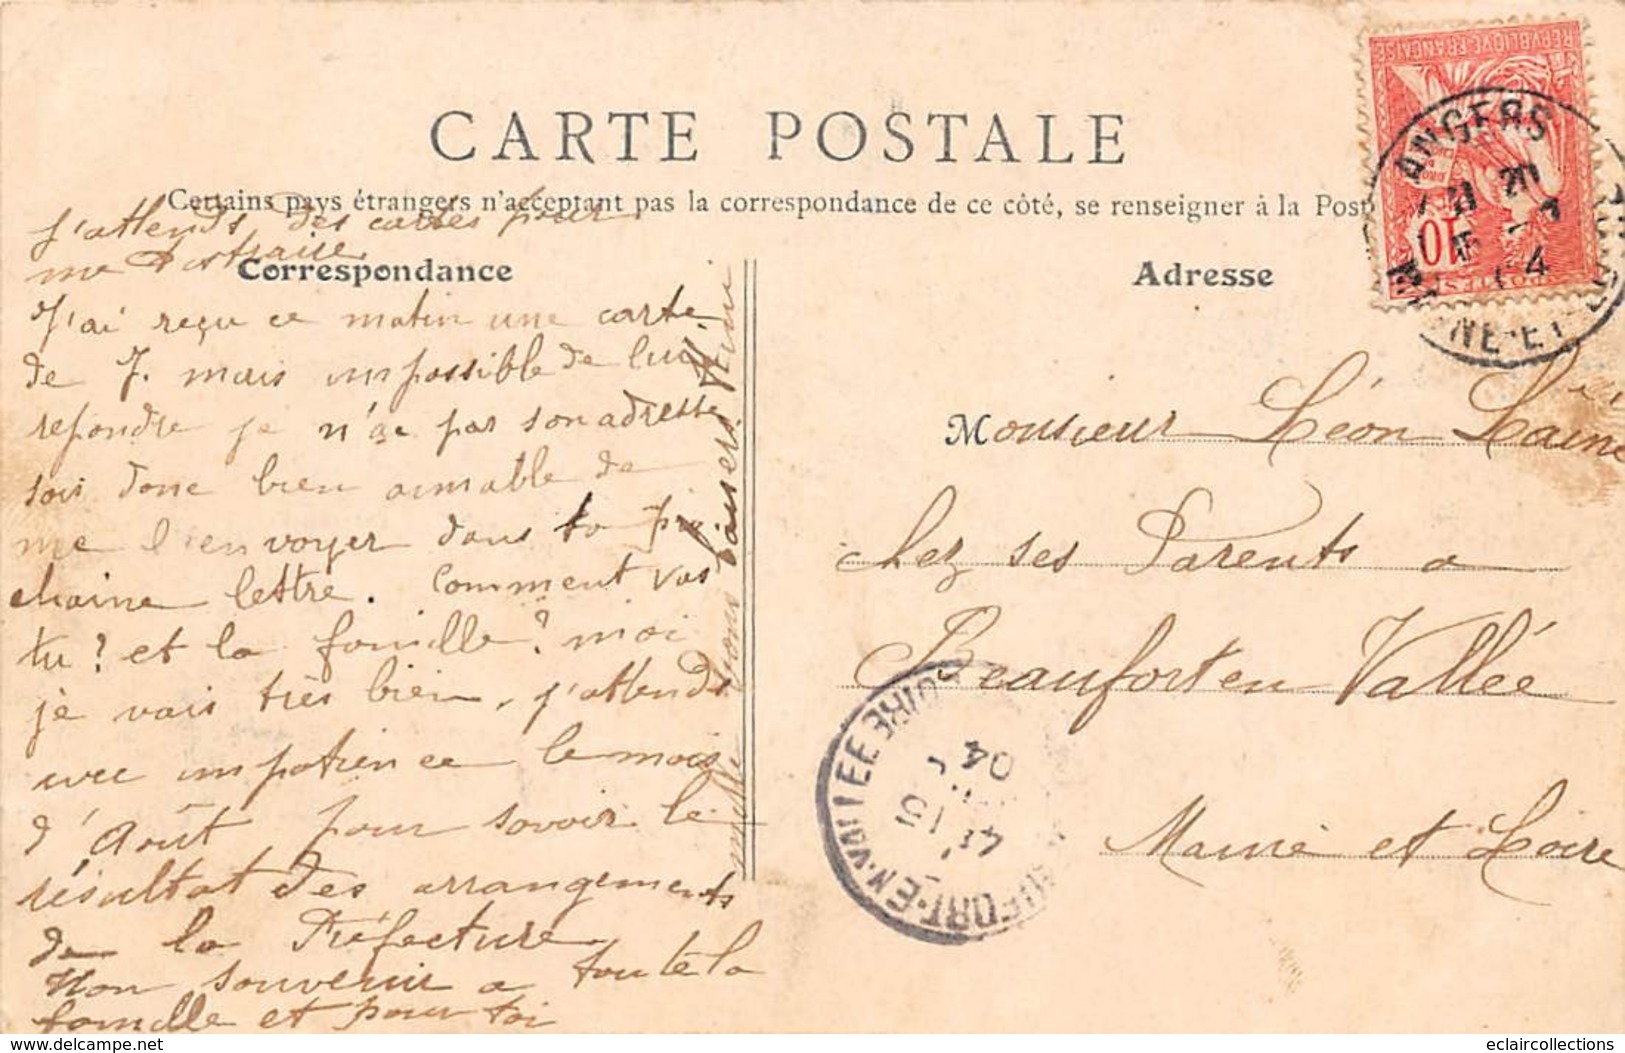 CARTE POSTALE
Certains pays étrangers n'acceptant pas la correspondance de ce côté, se renseigner à la Post
j'attends des cartes pour
me distraire
Correspondance
J'ai reçu ce matin une carte
de J. mais impossible de lui
repondre je n'ai pas son adresse
sois donc bien aimable de
me l'envoyer dans ta pro
chaine lettre. Comment vas
tu? et la famille? moi
je vais très bien, j'attends
avec impatience le mois
d'Août pour savoir le
résultat des arrangements
de la Préfecture
Mon souvenir a toute la
famille et pour toi
mille bons baisers
Adresse
Monsieur Léon Laine
chez ses Parents a
Beaufort en Vallée
Maine et Loire
REPUBLIQUE FRANÇAISE
10
POSTES
ANGERS
NE-ET
4
EN-VALLEE
04
eclaircollections
delcampe.net